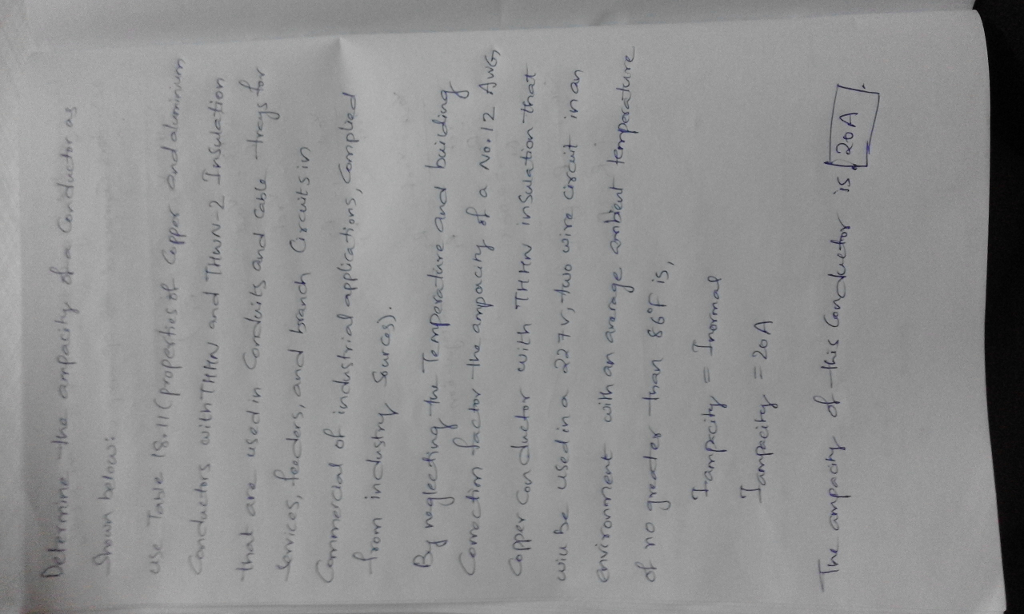 Determine the ampacity of a Conductor as
Shown below:
use Table 18.11 (properties of Copper and aluminium
Conductors with THHN and THWN-2 Insulation
that are used in Conduits and Cable trays for
Services, feeders, and branch Circuits in
Commercial of industrial applications, Complied
from industry sources).
By neglecting the Temperature and building
Correction factor the ampacity of a No.12 AWG,
Copper Conductor with THHN insulation that
will be used in a 227V, two wire circuit in an
environment with an average ambient temperature
of no greater than 86°F is,
Iampacity = Inormal
Iampacity = 20A
The ampacity of this Conductor is 20A.